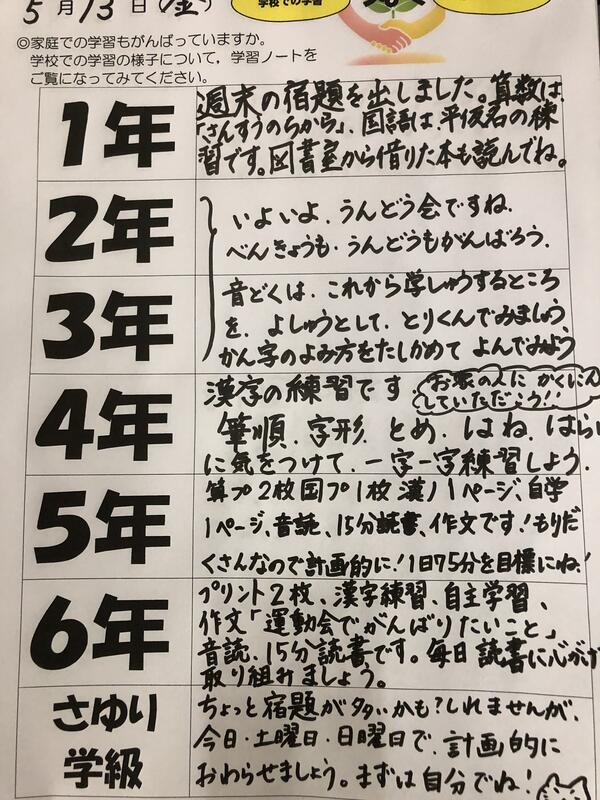 5月13日(金)
学校での学習
◎家庭での学習もがんばっていますか。
学校での学習の様子について,学習ノートを
ご覧になってみてください。
1年
週末の宿題を出しました。算数は、
「さんすうのちから」、国語は、平仮名の練
習です。図書室から借りた本も読んでね。
2年
いよいよ、うんどう会ですね。
べんきょうも、うんどうもがんばろう。
3年
音どくは、これから学しゅうするところ
を、よしゅうとして、とりくんでみましょう。
かん字のよみ方をたしかめて よんでみよう
4年
漢字の練習です
お家の人に かくにん
していただこう!!
筆順、字形、とめ、はね、はらい
に気をつけて、一字一字練習しよう。
5年
算プ2枚国プ1枚 漢ノ1ページ、自学
1ページ、音読、15分読書、作文です!もりだ
くさんなので計画的に!1日75分を目標にね!
6年
プリント2枚、漢字練習、自主学習、
作文「運動会でがんばりたいこと」
音読、15分読書です。毎日読書に心がけ
取り組みましょう。
さゆり
学級
ちょっと宿題が多いかも?しれませんが、
今日・土曜日・日曜日で、計画的に
おわらせましょう。まずは自分でね!